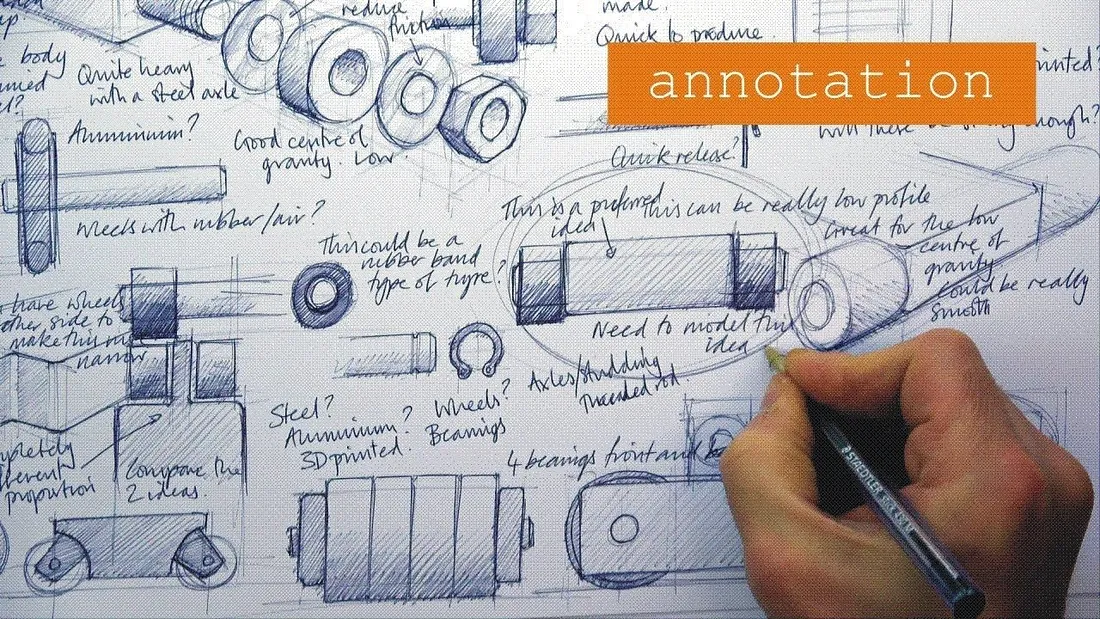 reduce
friction
made.
Quick to produce.
annotation
body
Quite heavy
with a steel axle
Aluminium?
Good centre of
gravity. Low.
Quick release?
enough?
wheels with rubber/air?
This is a preferred
idea
This can be really low profile
Great for the low
centre of
gravity
could be really
smooth
This could be a
rubber band
type of tyre?
have wheels
other side to
make this
narrow
Need to model this
idea
Axles/studding
Threaded rod.
Steel?
Aluminium?
3D printed.
Wheels?
Bearings
4 bearings front and
Compare the
2 ideas.
proportion
STAEDTLER